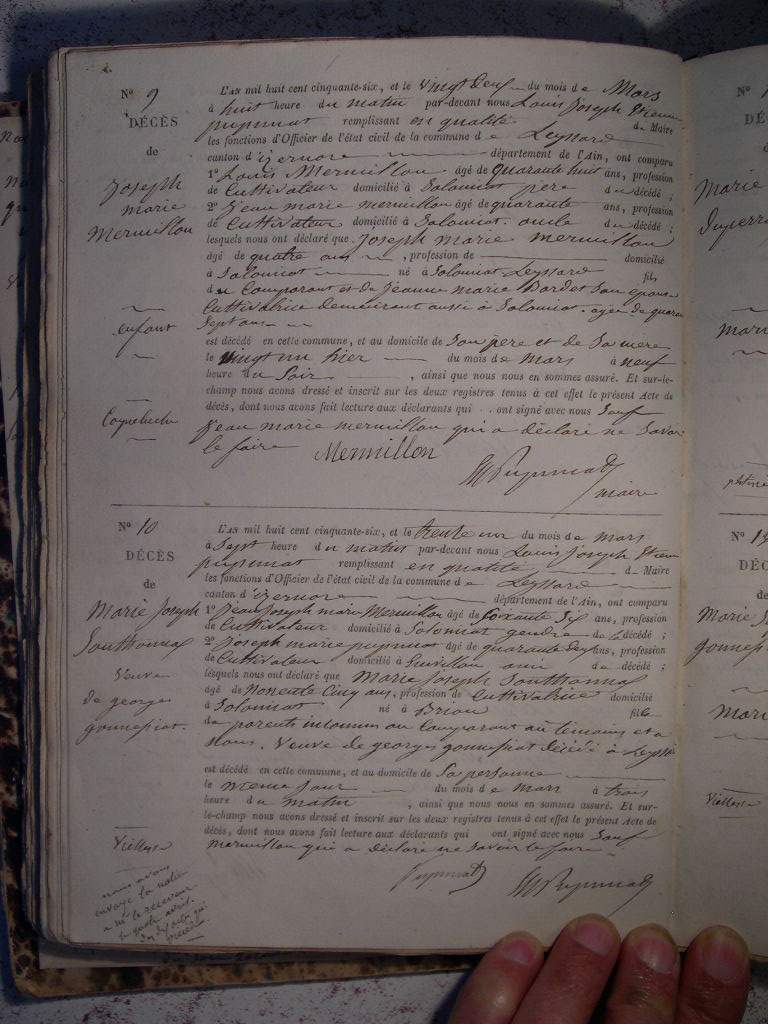 N° 9
DÉCÈS
de
Joseph
marie
Mermillon
enfant
Coqueluche
L'AN mil huit cent cinquante-six, et le vingt deux du mois de Mars
à huit heure du matin par-devant nous Louis Joseph Etienne
puyunat remplissant en qualité de Maire
les fonctions d'Officier de l'état civil de la commune de Leyssard
canton d'izernore département de l'Ain, ont comparu
1° Louis Mermillon âgé de quarante huit ans, profession
de Cultivateur domicilié à Solomiat père du décédé ;
2° Jean marie mermillon âgé de quarante ans, profession
de Cultivateur domicilié à Solomiat. oncle du décédé ;
lesquels nous ont déclaré que Joseph marie mermillon
âgé de quatre ans, profession de domicilié
à Solomiat né à Solomiat Leyssard fils
du Comparant et de Jeanne marie Bordet son epouse
Cultivatrice demeurant aussi à Solomiat. agée de quarante
sept ans
est décédé en cette commune, et au domicile de son père et de sa mère
le vingt un hier du mois de Mars à neuf
heure du soir, ainsi que nous nous en sommes assuré. Et sur-le-
champ nous avons dressé et inscrit sur les deux registres tenus à cet effet le présent Acte de
décès, dont nous avons fait lecture aux déclarants qui ont signé avec nous sauf
Jean marie mermillon qui a déclaré ne savoir
le faire Mermillon
maire
N° 10
DÉCÈS
de
Marie Joseph
Southonnax
Veuve
de georges
gonnessiat.
Vieillesse
nous avons
envoyé la notice
a mr le receveur
le quatre avril.
L'AN mil huit cent cinquante-six, et le trente un du mois de mars
à Sept heure du matin par-devant nous Louis Joseph Etienne
puyunat remplissant en qualité de Maire
les fonctions d'Officier de l'état civil de la commune de Leyssard
canton d'izernore département de l'Ain, ont comparu
1° Jean Joseph marie Mermillon âgé de soixante Six ans, profession
de Cultivateur domicilié à Solomiat gendre de la décédé ;
2° Joseph marie puyunat âgé de quarante ans, profession
de Cultivateur domicilié à ami de décédé ;
lesquels nous ont déclaré que Marie Joseph Southonnax
âgé de Nonente Cinq ans, profession de Cultivatrice domicilié
à Solomiat né à Brion fille
de parents inconnus au Comparant au témoins et a
Nous. Veuve de georges gonnessiat décédé à Leyssard
est décédé en cette commune, et au domicile de Sa personne
le meme jour du mois de Mars à trois
heure du matin, ainsi que nous nous en sommes assuré. Et sur-
le-champ nous avons dressé et inscrit sur les deux registres tenus à cet effet le présent Acte de
décès, dont nous avons fait lecture aux déclarants qui ont signé avec nous sauf
Mermillon qui a déclaré ne savoir le faire